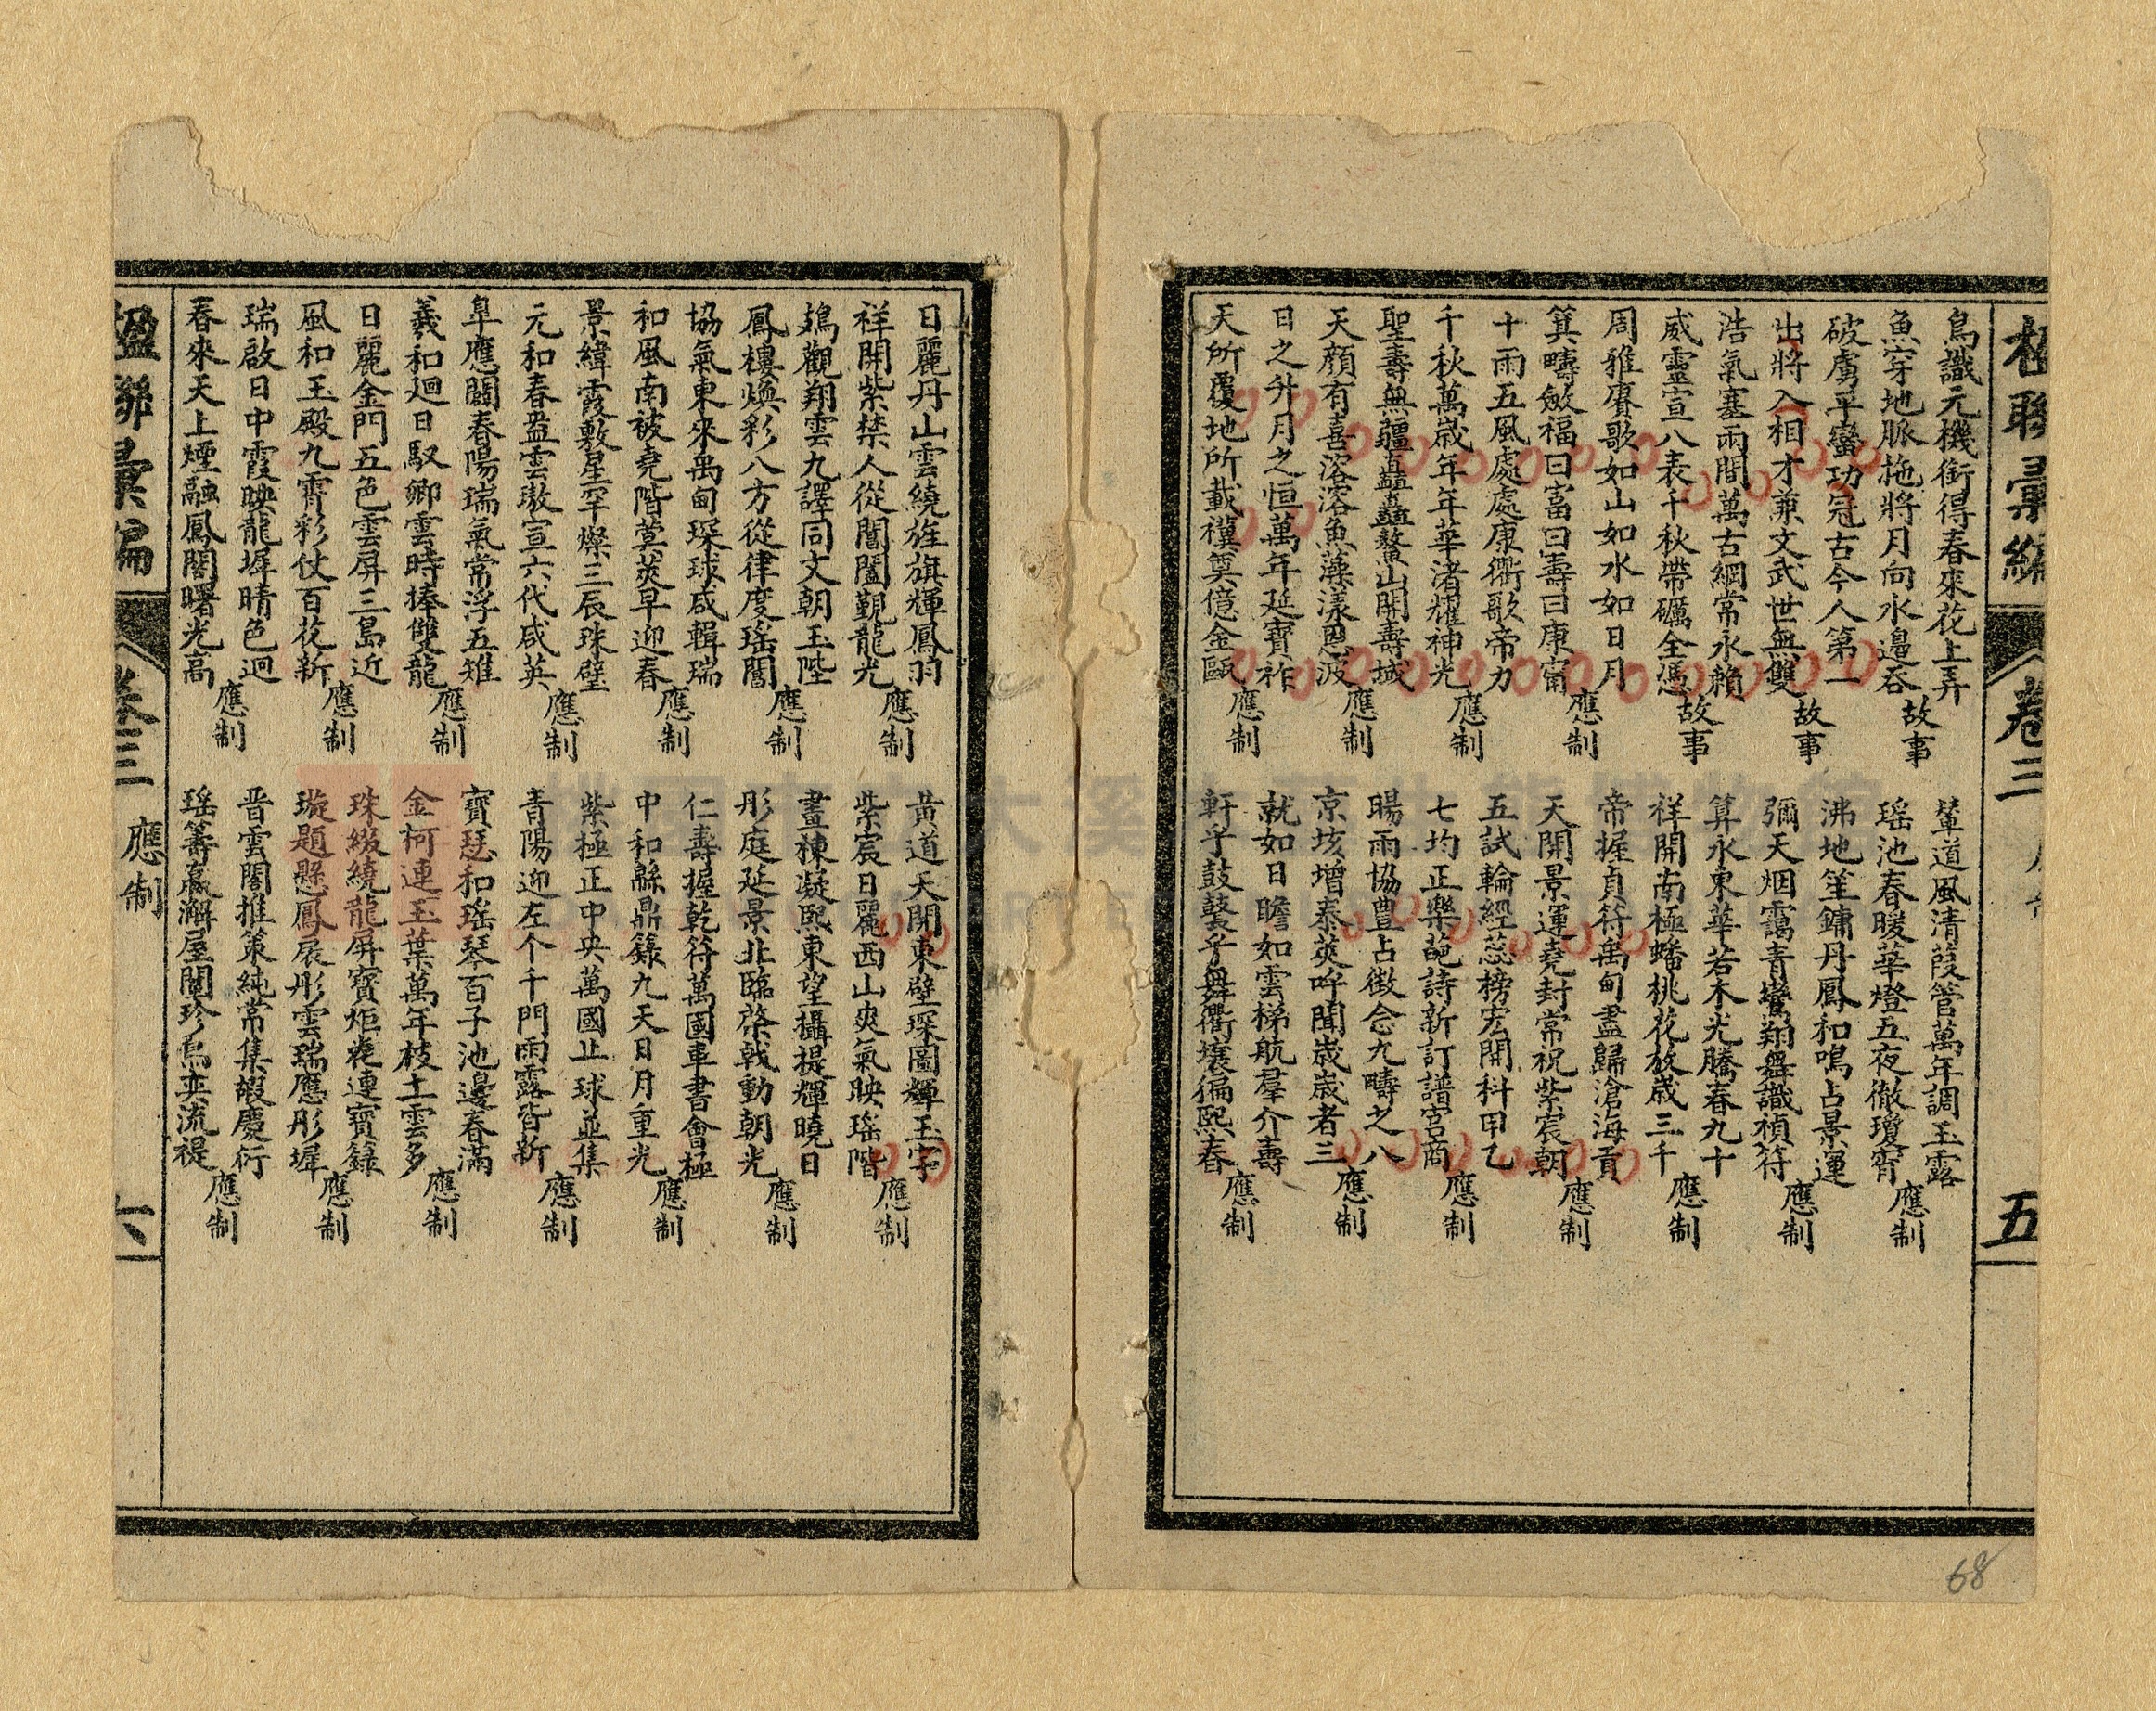 楹聯彙編 卷三 五
鳥識元機銜得春來花上弄
魚穿地脈拖將月向水邊吞
故事
破虜平蠻功冠古今人第一
出將入相才兼文武世無雙
故事
浩氣塞兩間萬古綱常永賴
威靈宣八表千秋帶礪全憑
故事
周雅賡歌如山如水如日月
箕疇斂福曰富曰壽曰康甯
應制
十雨五風處處康衢歌帝力
千秋萬歲年年華渚耀神光
應制
聖壽無疆矗矗鰲山開壽域
天顏有喜溶溶魚藻漾恩波
應制
日之升月之恒萬年延寶祚
天所覆地所載襈奠億金甌
應制
輦道風清葭管萬年調玉露
瑤池春暖華燈五夜徹瓊霄
應制
沸地笙鏞丹鳳和鳴占景運
彌天烟靄青鸞翔舞識禎符
應制
算永東華若木光騰春九十
祥開南極蟠桃花放歲三千
應制
帝握貞符禹甸盡歸滄海貢
天開景運堯封常祝紫宸朝
應制
五試輪經蕊榜宏開科甲乙
七均正樂葩詩新訂譜宮商
應制
暘雨協豐占徵念九疇之八
京垓增泰莢呼聞歲歲者三
應制
就如日瞻如雲梯航羣介壽
軒乎鼓鼚乎舞衢壤徧熙春
應制
日麗丹山雲繞旌旗輝鳳羽
祥開紫禁人從閶闔覲龍光
應制
鳷觀翔雲九譯同文朝玉陛
鳳樓煥彩八方從律度瑤閶
應制
協氣東來禹甸琛球咸輯瑞
和風南被堯階蓂莢早迎春
應制
景緯霞敷星罕燦三辰珠璧
元和春盎雲璈宣六代咸英
應制
阜應閶春陽瑞氣常浮五雉
羲和迴日馭卿雲時捧雙龍
應制
日麗金門五色雲屏三島近
風和玉殿九霄彩仗百花新
應制
瑞啟日中霞映龍墀晴色迥
春來天上煙融鳳閣曙光高
應制
黃道天開東壁琛圖輝玉宇
紫宸日麗西山爽氣映瑤階
應制
畫棟凝熙東望攝提輝曉日
彤庭延景北臨棨戟動朝光
應制
仁壽握乾符萬國車書會極
中和緜鼎籙九天日月重光
應制
紫極正中央萬國止球並集
青陽迎左个千門雨露皆新
應制
寶瑟和瑤琴百子池邊春滿
金柯連玉葉萬年枝上雲多
應制
珠綴繞龍屏寶炬花連寶籙
璇題懸鳳扆彤雲瑞應彤墀
應制
晋雲閣推策純常集嘏慶衍
瑤籌嬴澥屋闓珍烏奕流禔
應制
楹聯彙編 卷三 應制 六
68